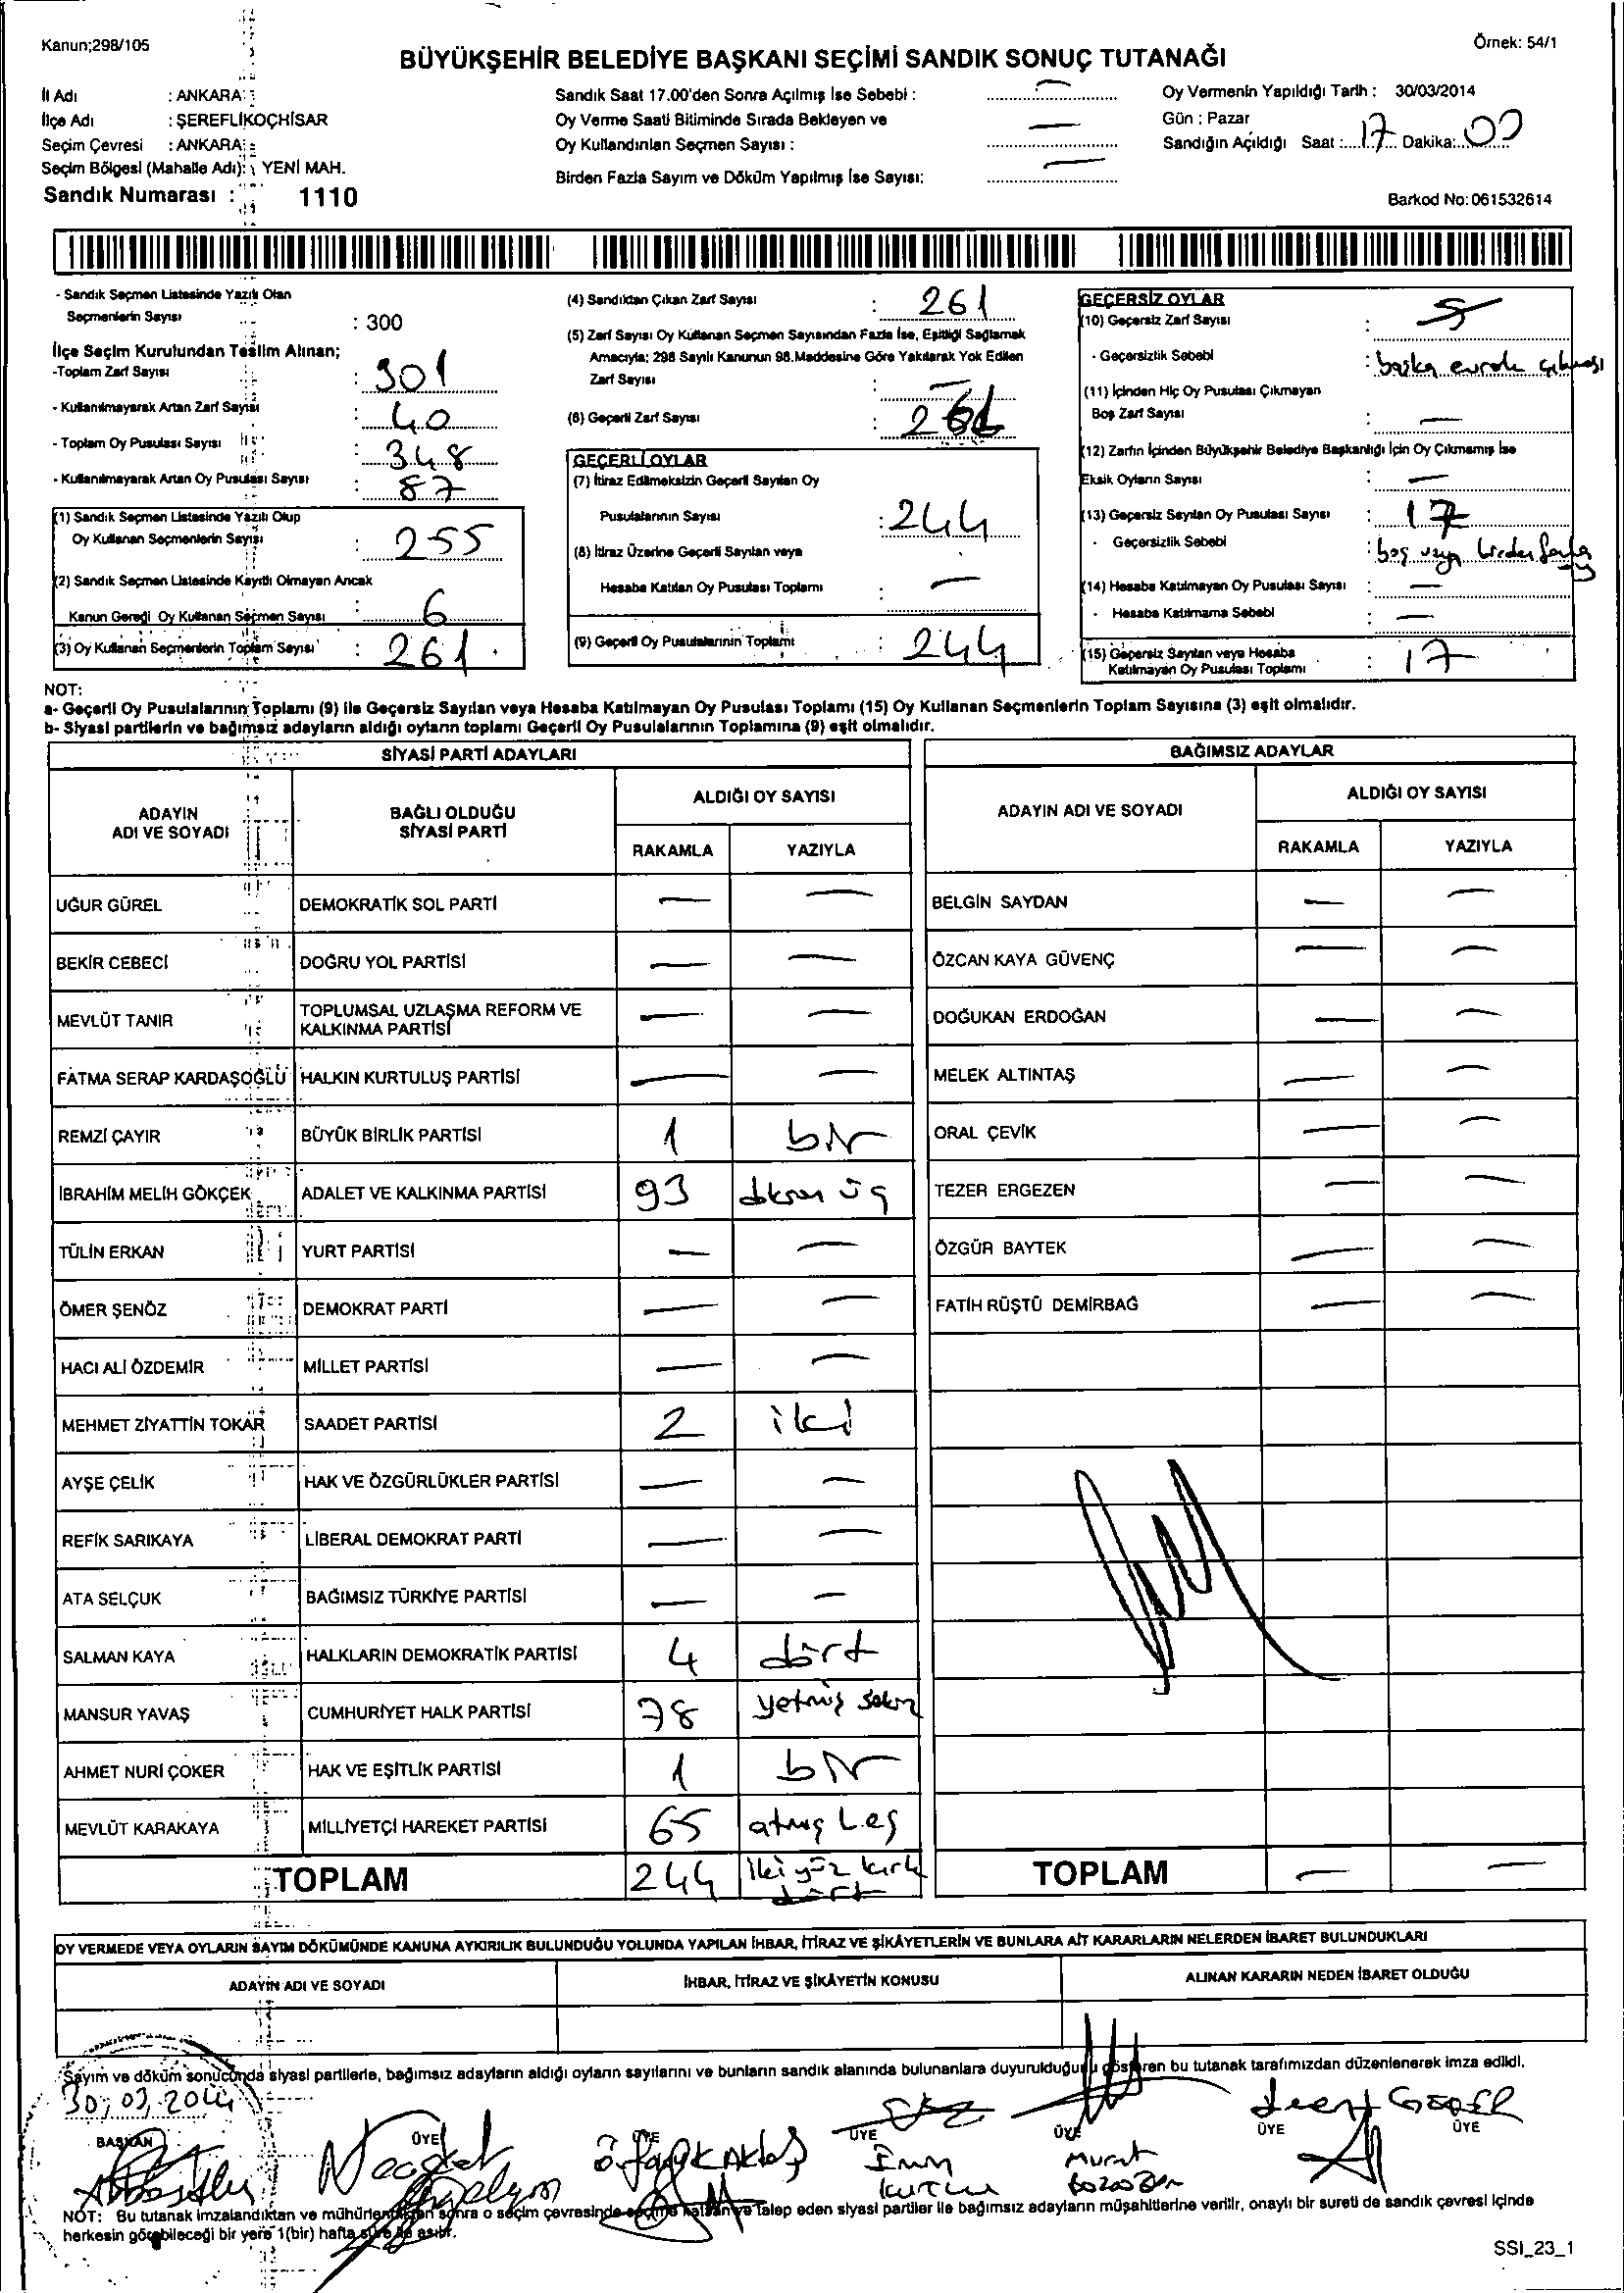 Kanun;298/105
Örnek: 54/1
BÜYÜKŞEHİR BELEDİYE BAŞKANI SEÇİMİ SANDIK SONUÇ TUTANAĞI
İl Adı : ANKARA
İlçe Adı : ŞEREFLİKOÇHİSAR
Seçim Çevresi : ANKARA
Seçim Bölgesi (Mahalle Adı): YENİ MAH.
Sandık Numarası : 1110
Sandık Saat 17.00'den Sonra Açılmış İse Sebebi : —
Oy Verme Saati Bitiminde Sırada Bekleyen ve
Oy Kullandırılan Seçmen Sayısı : —
Birden Fazla Sayım ve Döküm Yapılmış İse Sayısı: —
Oy Vermenin Yapıldığı Tarih : 30/03/2014
Gün : Pazar
Sandığın Açıldığı Saat : 17 Dakika: 00
Barkod No: 061532614
- Sandık Seçmen Listesinde Yazılı Olan
Seçmenlerin Sayısı : 300
İlçe Seçim Kurulundan Teslim Alınan;
-Toplam Zarf Sayısı : 301
- Kullanılmayarak Artan Zarf Sayısı : 40
- Toplam Oy Pusulası Sayısı : 348
- Kullanılmayarak Artan Oy Pusulası Sayısı : 87
(1) Sandık Seçmen Listesinde Yazılı Olup
Oy Kullanan Seçmenlerin Sayısı : 255
(2) Sandık Seçmen Listesinde Kayıtlı Olmayan Ancak
Kanun Gereği Oy Kullanan Seçmen Sayısı : 6
(3) Oy Kullanan Seçmenlerin Toplam Sayısı : 261
(4) Sandıktan Çıkan Zarf Sayısı : 261
(5) Zarf Sayısı Oy Kullanan Seçmen Sayısından Fazla İse, Eşitliği Sağlamak
Amacıyla; 298 Sayılı Kanunun 98.Maddesine Göre Yakılarak Yok Edilen
Zarf Sayısı : —
(6) Geçerli Zarf Sayısı : 261
GEÇERLİ OYLAR
(7) İtiraz Edilmeksizin Geçerli Sayılan Oy
Pusulalarının Sayısı : 244
(8) İtiraz Üzerine Geçerli Sayılan veya
Hesaba Katılan Oy Pusulası Toplamı : —
(9) Geçerli Oy Pusulalarının Toplamı : 244
GEÇERSİZ OYLAR
(10) Geçersiz Zarf Sayısı : 5
- Geçersizlik Sebebi : başka evrak çıkması
(11) İçinden Hiç Oy Pusulası Çıkmayan
Boş Zarf Sayısı : —
(12) Zarfın İçinden Büyükşehir Belediye Başkanlığı İçin Oy Çıkmamış İse
Eksik Oyların Sayısı : —
(13) Geçersiz Sayılan Oy Pusulası Sayısı : 17
- Geçersizlik Sebebi : boş veya birden fazla
(14) Hesaba Katılmayan Oy Pusulası Sayısı : —
- Hesaba Katılmama Sebebi : —
(15) Geçersiz Sayılan veya Hesaba
Katılmayan Oy Pusulası Toplamı : 17
NOT:
a- Geçerli Oy Pusulalarının Toplamı (9) ile Geçersiz Sayılan veya Hesaba Katılmayan Oy Pusulası Toplamı (15) Oy Kullanan Seçmenlerin Toplam Sayısına (3) eşit olmalıdır.
b- Siyasi partilerin ve bağımsız adayların aldığı oyların toplamı Geçerli Oy Pusulalarının Toplamına (9) eşit olmalıdır.
SİYASİ PARTİ ADAYLARI
ADAYIN ADI VE SOYADI BAĞLI OLDUĞU SİYASİ PARTİ ALDIĞI OY SAYISI
RAKAMLA YAZIYLA
UĞUR GÜREL DEMOKRATİK SOL PARTİ — —
BEKİR CEBECİ DOĞRU YOL PARTİSİ — —
MEVLÜT TANIR TOPLUMSAL UZLAŞMA REFORM VE KALKINMA PARTİSİ — —
FATMA SERAP KARDAŞOĞLU HALKIN KURTULUŞ PARTİSİ — —
REMZİ ÇAYIR BÜYÜK BİRLİK PARTİSİ 1 bir
İBRAHİM MELİH GÖKÇEK ADALET VE KALKINMA PARTİSİ 93 doksan üç
TÜLİN ERKAN YURT PARTİSİ — —
ÖMER ŞENÖZ DEMOKRAT PARTİ — —
HACI ALİ ÖZDEMİR MİLLET PARTİSİ — —
MEHMET ZİYATTİN TOKAR SAADET PARTİSİ 2 iki
AYŞE ÇELİK HAK VE ÖZGÜRLÜKLER PARTİSİ — —
REFİK SARIKAYA LİBERAL DEMOKRAT PARTİ — —
ATA SELÇUK BAĞIMSIZ TÜRKİYE PARTİSİ — —
SALMAN KAYA HALKLARIN DEMOKRATİK PARTİSİ 4 dört
MANSUR YAVAŞ CUMHURİYET HALK PARTİSİ 78 yetmiş sekiz
AHMET NURİ ÇOKER HAK VE EŞİTLİK PARTİSİ 1 bir
MEVLÜT KARAKAYA MİLLİYETÇİ HAREKET PARTİSİ 65 atmış beş
TOPLAM 244 iki yüz kırk dört
BAĞIMSIZ ADAYLAR
ADAYIN ADI VE SOYADI ALDIĞI OY SAYISI
RAKAMLA YAZIYLA
BELGİN SAYDAN — —
ÖZCAN KAYA GÜVENÇ — —
DOĞUKAN ERDOĞAN — —
MELEK ALTINTAŞ — —
ORAL ÇEVİK — —
TEZER ERGEZEN — —
ÖZGÜR BAYTEK — —
FATİH RÜŞTÜ DEMİRBAĞ — —
TOPLAM — —
OY VERMEDE VEYA OYLARIN SAYIM DÖKÜMÜNDE KANUNA AYKIRILIK BULUNDUĞU YOLUNDA YAPILAN İHBAR, İTİRAZ VE ŞİKÂYETLERİN VE BUNLARA AİT KARARLARIN NELERDEN İBARET BULUNDUKLARI
ADAYIN ADI VE SOYADI İHBAR, İTİRAZ VE ŞİKÂYETİN KONUSU ALINAN KARARIN NEDEN İBARET OLDUĞU
Sayım ve döküm sonucunda siyasi partilerle, bağımsız adayların aldığı oyların sayılarını ve bunların sandık alanında bulunanlara duyurulduğunu gösteren bu tutanak tarafımızdan düzenlenerek imza edildi.
30,03,2014
BAŞKAN ÜYE ÜYE ÜYE ÜYE ÜYE ÜYE
Ö.Faruk Aktaş
Murat
NOT: Bu tutanak imzalandıktan ve mühürlendikten sonra o seçim çevresinde seçime katılan ve talep eden siyasi partiler ile bağımsız adayların müşahitlerine verilir, onaylı bir sureti de sandık çevresi içinde
herkesin görebileceği bir yere 1(bir) hafta süre ile asılır.
SSI_23_1